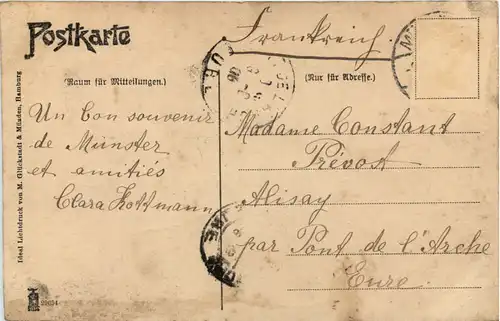 Postkarte
Frankreich.
(Raum für Mitteilungen.)
(Nur für Adresse.)
Un bon souvenir
de Münster
et amitiés
Clara Kottmann
Madame Constant
Prévost
Alisay
par Pont de l'Arche
Eure.
Ideal Lichtdruck von M. Glückstadt & Münden, Hamburg